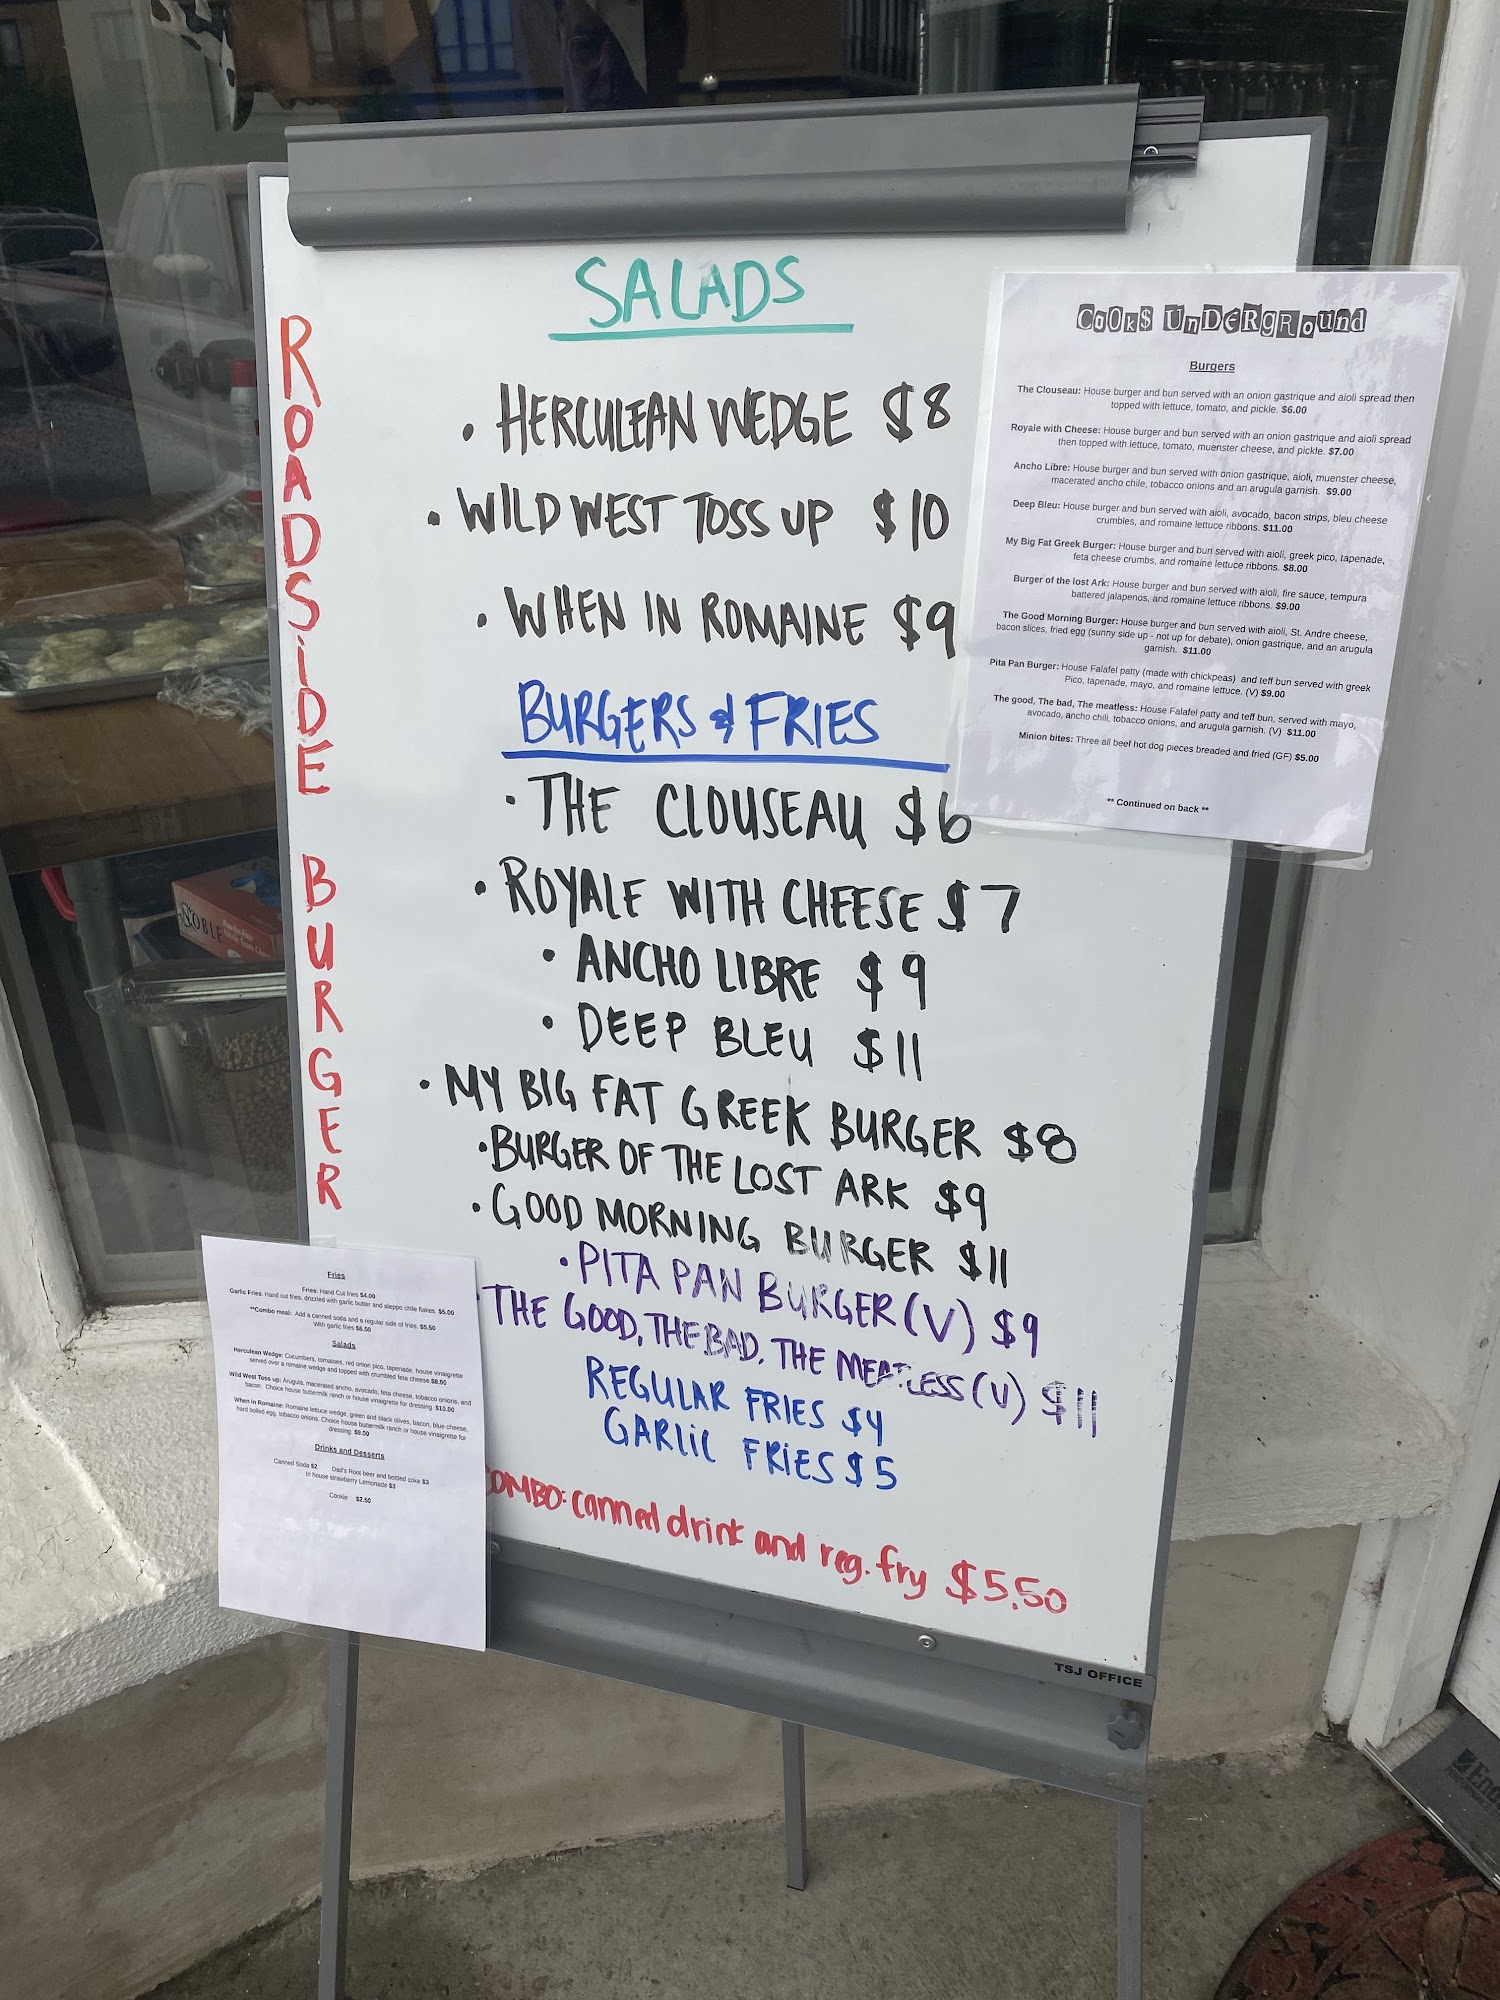 ROADSIDE BURGER
SALADS
• HERCULEAN WEDGE $8
• WILD WEST TOSS UP $10
• WHEN IN ROMAINE $9
BURGERS & FRIES
• THE CLOUSEAU $6
• ROYALE WITH CHEESE $7
• ANCHO LIBRE $9
• DEEP BLEU $11
• MY BIG FAT GREEK BURGER $8
• BURGER OF THE LOST ARK $9
• GOOD MORNING BURGER $11
• PITA PAN BURGER (V) $9
• THE GOOD, THE BAD, THE MEATLESS (V) $11
REGULAR FRIES $4
GARLIC FRIES $5
COMBO: canned drink and reg. fry $5.50
TSJ OFFICE
COOK$ UnDERgROund
Burgers
The Clouseau: House burger and bun served with an onion gastrique and aioli spread then
topped with lettuce, tomato, and pickle. $6.00
Royale with Cheese: House burger and bun served with an onion gastrique and aioli spread
then topped with lettuce, tomato, muenster cheese, and pickle. $7.00
Ancho Libre: House burger and bun served with onion gastrique, aioli, muenster cheese,
macerated ancho chile, tobacco onions and an arugula garnish. $9.00
Deep Bleu: House burger and bun served with aioli, avocado, bacon strips, bleu cheese
crumbles, and romaine lettuce ribbons. $11.00
My Big Fat Greek Burger: House burger and bun served with aioli, greek pico, tapenade,
feta cheese crumbs, and romaine lettuce ribbons. $8.00
Burger of the lost Ark: House burger and bun served with aioli, fire sauce, tempura
battered jalapenos, and romaine lettuce ribbons. $9.00
The Good Morning Burger: House burger and bun served with aioli, St. Andre cheese,
bacon slices, fried egg (sunny side up - not up for debate), onion gastrique, and an arugula
garnish. $11.00
Pita Pan Burger: House Falafel patty (made with chickpeas) and teff bun served with greek
Pico, tapenade, mayo, and romaine lettuce. (V) $9.00
The good, The bad, The meatless: House Falafel patty and teff bun, served with mayo,
avocado, ancho chili, tobacco onions, and arugula garnish. (V) $11.00
Minion bites: Three all beef hot dog pieces breaded and fried (GF) $5.00
** Continued on back **
Fries
Fries: Hand Cut fries $4.00
Garlic Fries: Hand cut fries, drizzled with garlic butter and aleppo chile flakes. $5.00
**Combo meal: Add a canned soda and a regular side of fries. $5.50
With garlic fries $6.50
Salads
Herculean Wedge: Cucumbers, tomatoes, red onion pico, tapenade, house vinaigrette
served over a romaine wedge and topped with crumbled feta cheese $8.00
Wild West Toss up: Arugula, macerated ancho, avocado, feta cheese, tobacco onions, and
bacon. Choice house buttermilk ranch or house vinaigrette for dressing $10.00
When in Romaine: Romaine lettuce wedge, green and black olives, bacon, blue cheese,
hard boiled egg, tobacco onions. Choice house buttermilk ranch or house vinaigrette for
dressing $9.00
Drinks and Desserts
Canned Soda $2 Dad's Root beer and bottled coke $3
In house strawberry Lemonade $3
Cookie $2.50
NOBLE